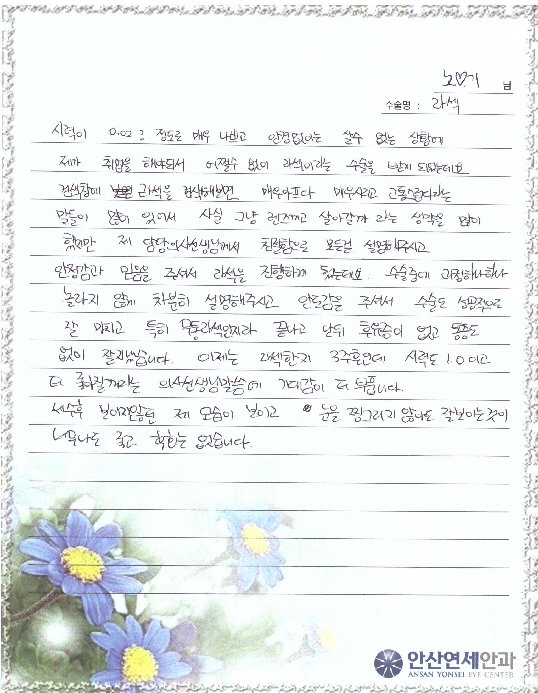 노♡기 님
수술명 : 라섹
시력이 0.02? 정도로 매우 나쁘고 안경없이는 살수 없는 상황에
제가 취업을 해야되서 어쩔수 없이 라섹이라는 수술을 받게 되었는데요
검색창에 라섹을 검색해보면 매우아프다 매우시리고 고통스럽다라는
말들이 많이 있어서 사실 그냥 렌즈끼고 살아갈까 라는 생각을 많이
했지만 제 담당의사선생님께서 친절함으로 모든걸 설명해주시고
안정감과 믿음을 주셔서 라섹을 진행하게 됐는데요. 수술중에 과정하나하나
놀라지 않게 차분히 설명해주시고 안도감을 주셔서 수술도 성공적으로
잘 마치고 특히 무통라섹인지라 끝나고 난뒤 후유증이 없고 통증도
없이 잘지냈습니다. 이제는 라섹한지 3주차인데 시력도 1.0이고
더 좋아질거라는 의사선생님말씀에 기대감이 더 부풉니다.
세수후 보이지않던 제 모습이 보이고 눈을 찡그리지 않아도 잘보이는것이
너무나도 좋고 후회는 없습니다.
안산연세안과
ANSAN YONSEI EYE CENTER